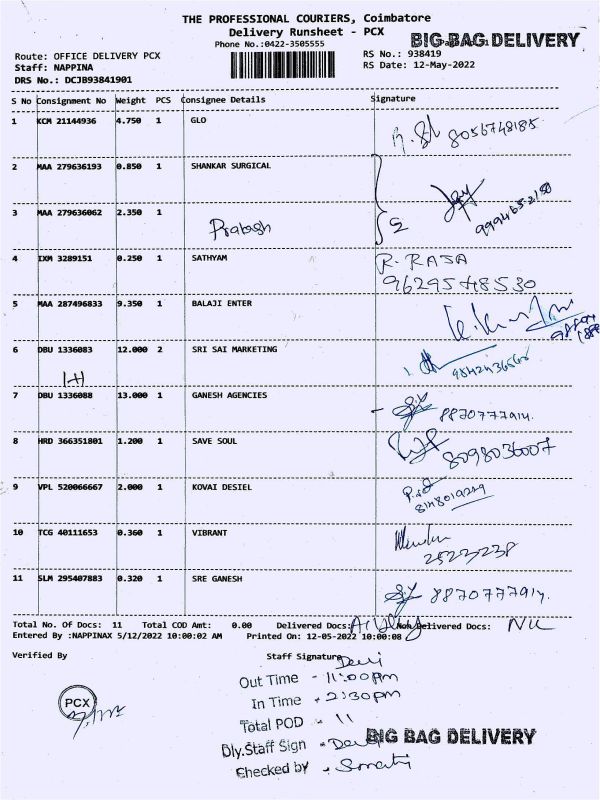 THE PROFESSIONAL COURIERS, Coimbatore
Delivery Runsheet - PCX
Phone No.:0422-3505555
BIG BAG DELIVERY
Route: OFFICE DELIVERY PCX
RS No.: 938419
Staff: NAPPINA
RS Date: 12-May-2022
DRS No.: DCJB93841901
S No Consignment No Weight PCS Consignee Details Signature
1 KCM 21144936 4.750 1 GLO 8056748185
2 MAA 279636193 0.850 1 SHANKAR SURGICAL
3 MAA 279636062 2.350 1 Prabash
4 IXM 3289151 0.250 1 SATHYAM R. RAJA
9629548530
5 MAA 287496833 9.350 1 BALAJI ENTER
6 DBU 1336083 12.000 2 SRI SAI MARKETING
7 DBU 1336088 13.000 1 GANESH AGENCIES 8870777914.
8 HRD 366351801 1.200 1 SAVE SOUL 8098036007
9 VPL 520066667 2.000 1 KOVAI DESIEL
10 TCG 40111653 0.360 1 VIBRANT
11 SLM 295407883 0.320 1 SRE GANESH 8870777914.
Total No. Of Docs: 11 Total COD Amt: 0.00 Delivered Docs: Non Delivered Docs:
Entered By :NAPPINAX 5/12/2022 10:00:02 AM Printed On: 12-05-2022 10:00:08
Verified By Staff Signature Devi
Out Time - 11:00 pm
In Time - 2:30 pm
PCX
Total POD - 11
Dly.Staff Sign - Devi
BIG BAG DELIVERY
Checked by -